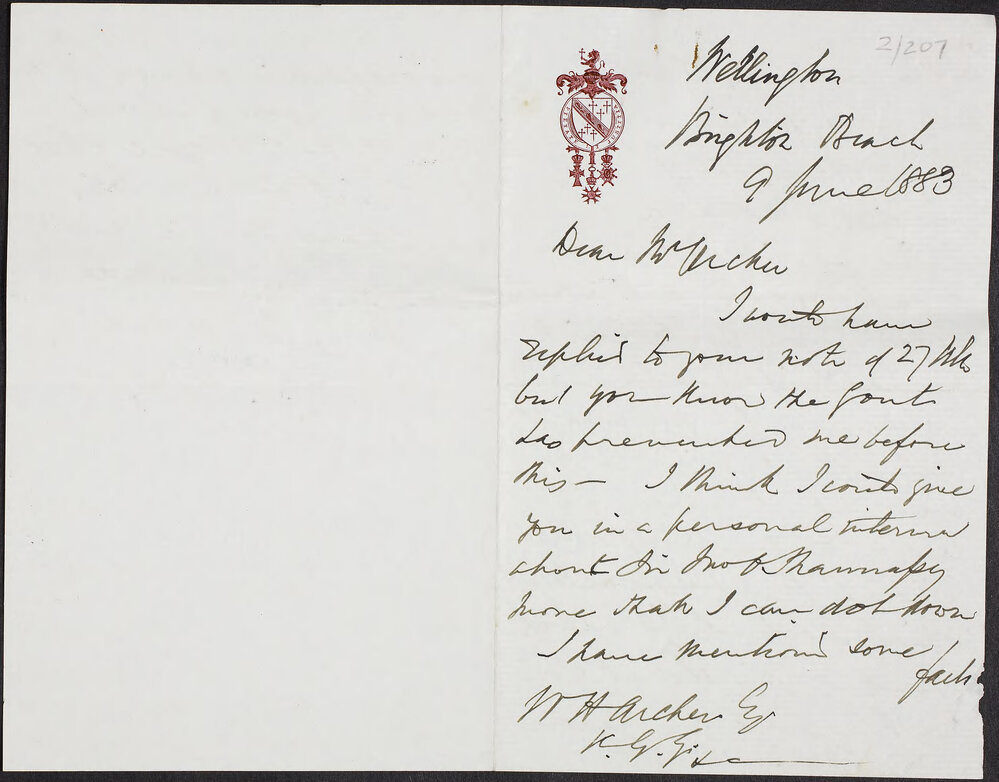 2/207
Wellington
Brighton Beach
9 June 1883
Dear Mr Archer
I would have
replied to your note of 27 Ulto
but you know the Gout
has prevented me before
this — I think I could give
you in a personal interview
about Sir Jno O'Shannassy
more than I can dot down
I have mention'd some
facts
W H Archer Esq
K.G.G.